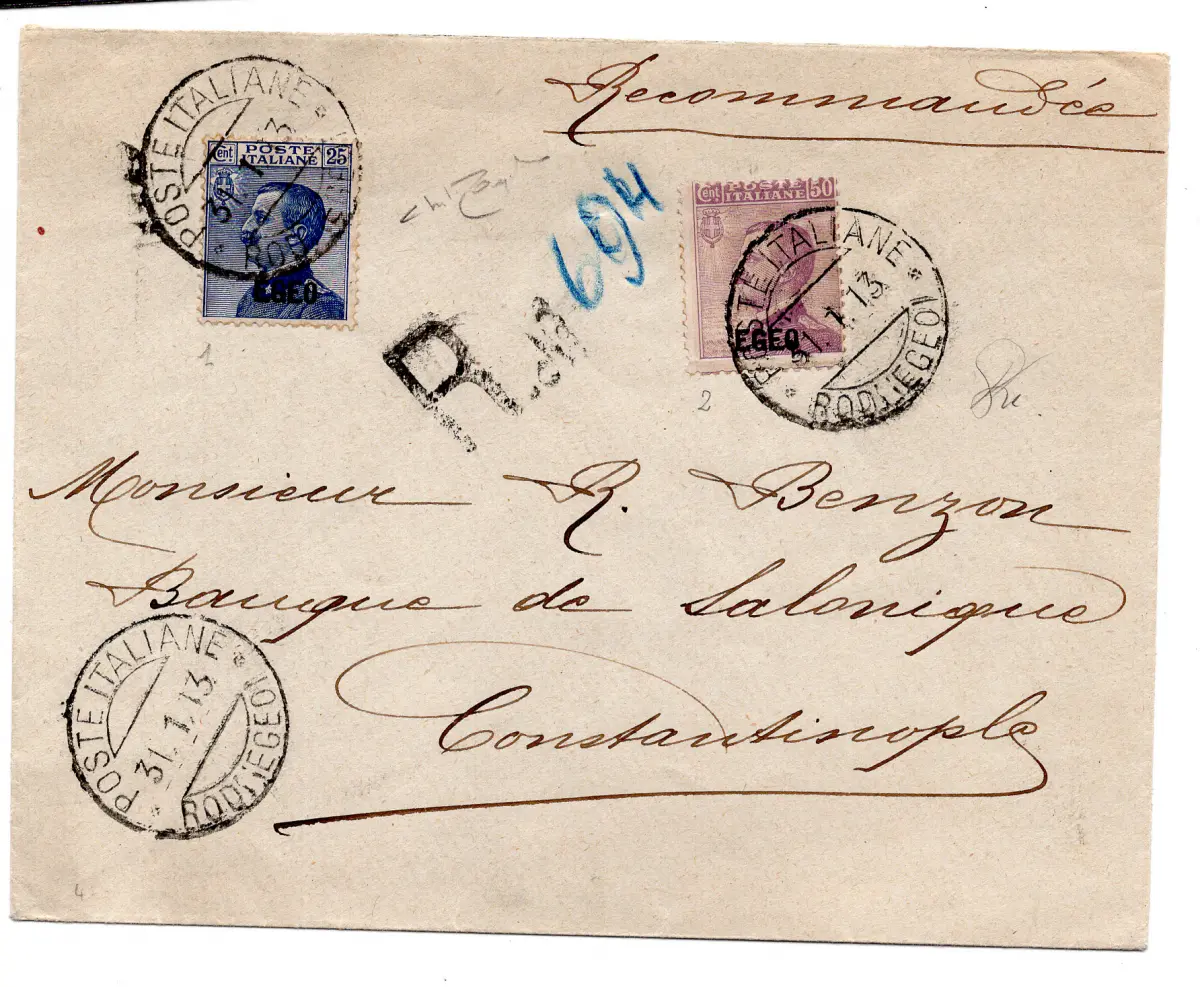 Recommandée
POSTE ITALIANE
31 1 13
ROD
Cent POSTE 25
ITALIANE
EGEO
694
R
Cent POSTE 50
ITALIANE
EGEO
POSTE ITALIANE
31.1.13
RODI (EGEO)
1
2
Monsieur R. Benzon
Banque de Salonique
Constantinople
POSTE ITALIANE
31.1.13
RODI (EGEO)
4